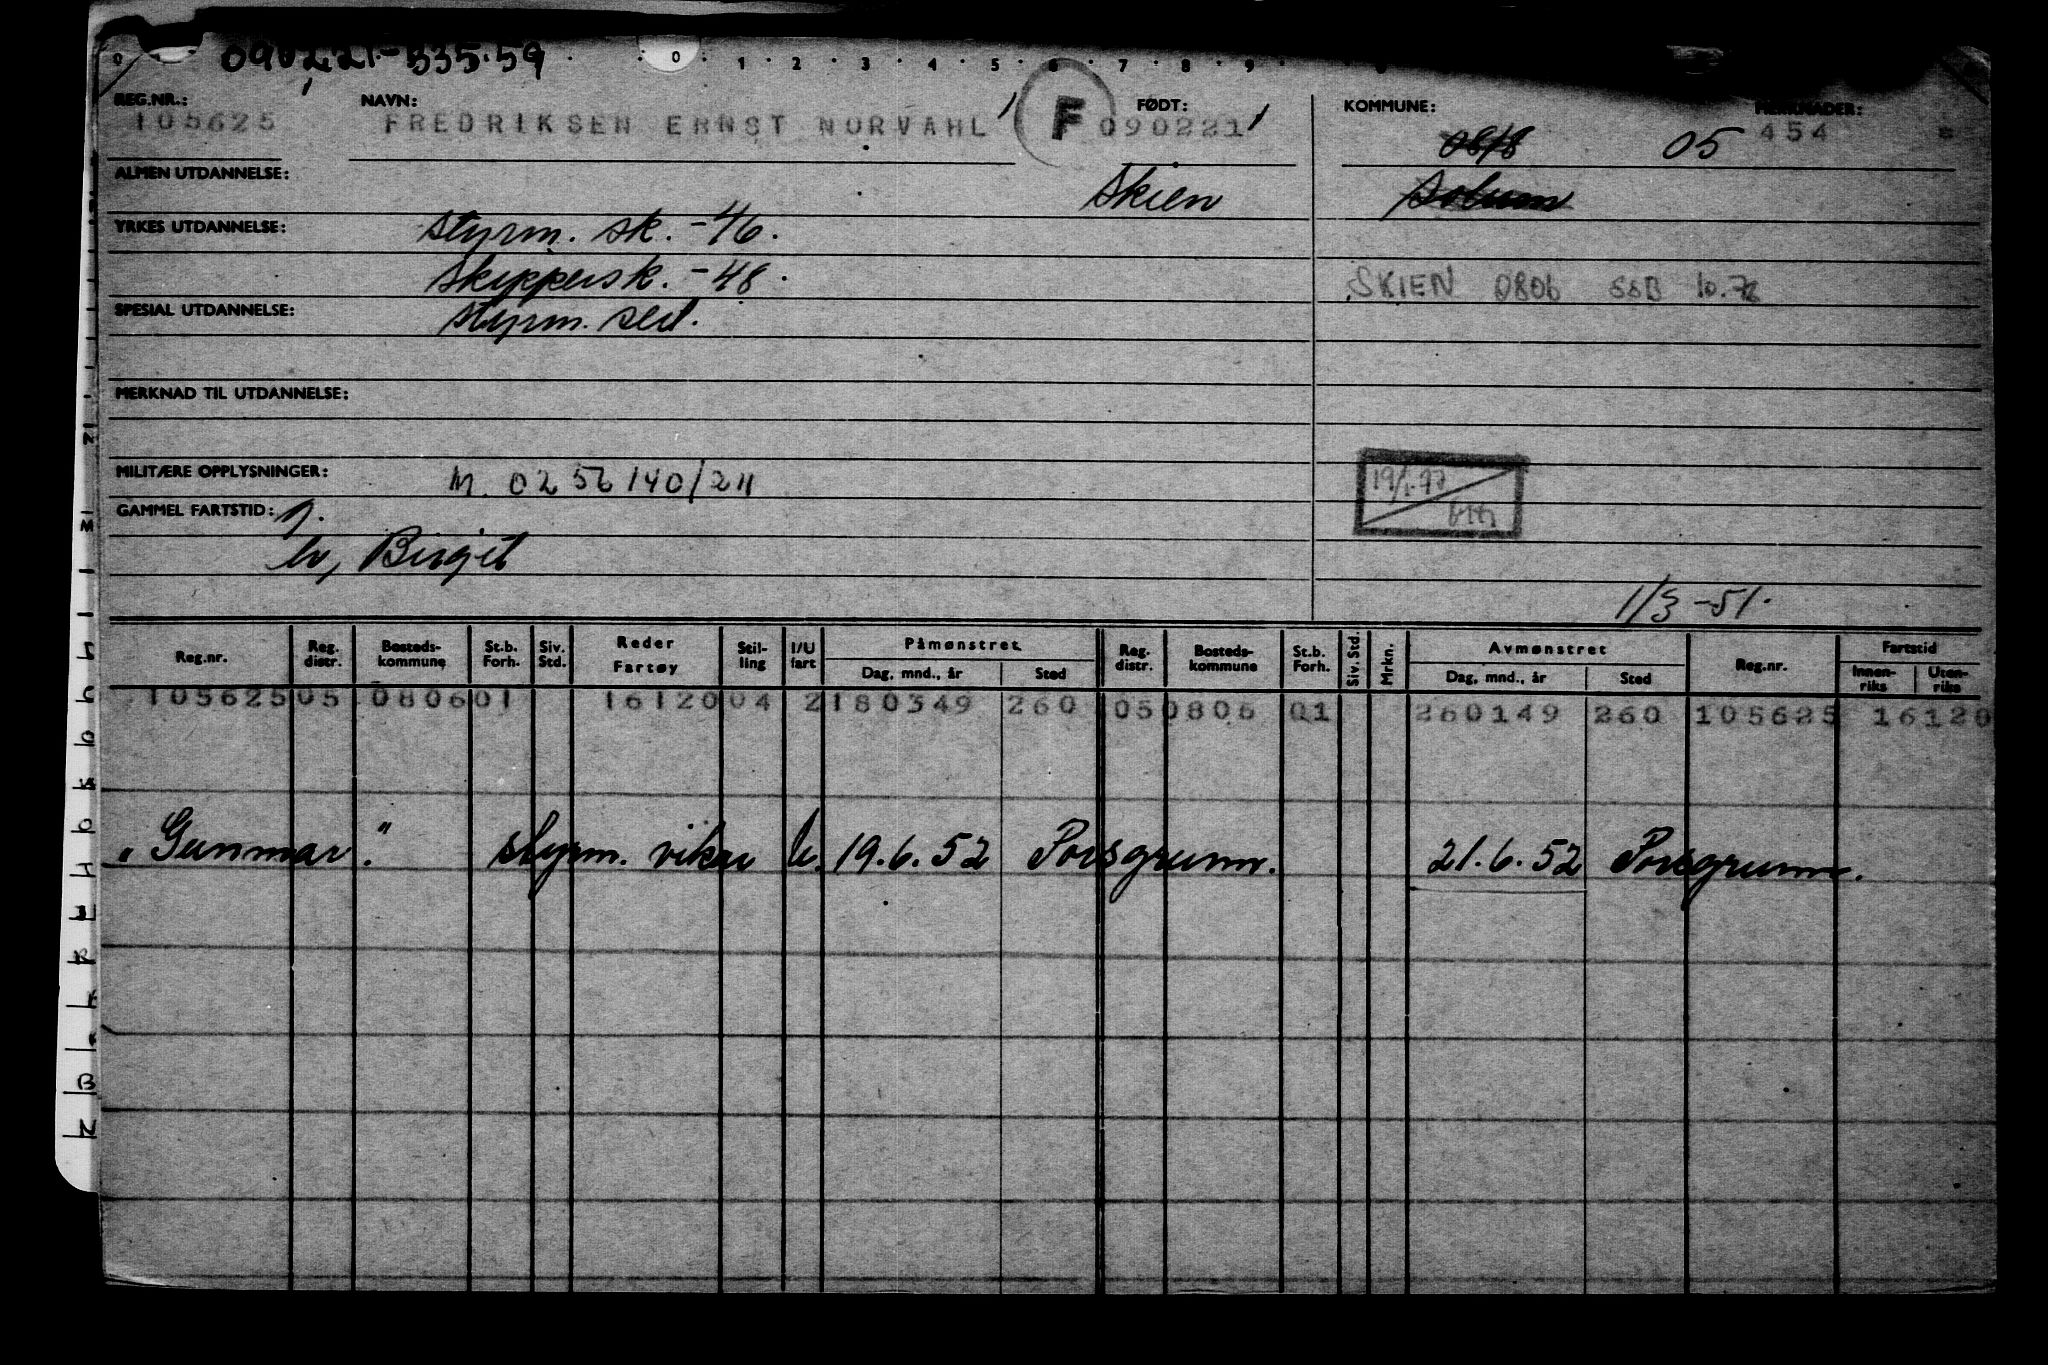 090221-535.59
0 0 1 2 3 4 5 6 7 8 9
REG.NR.: NAVN: FØDT: KOMMUNE: MERKNADER:
105625 FREDRIKSEN ERNST NORVAHL F 090221 0818 05 454
ALMEN UTDANNELSE: Skien Solum
YRKES UTDANNELSE: styrm. sk. -46.
skippersk. -48. SKIEN 0806 SSB 10.78
SPESIAL UTDANNELSE: styrm. sert.
MERKNAD TIL UTDANNELSE:
MILITÆRE OPPLYSNINGER: M. 0256140/211
GAMMEL FARTSTID:
Birgit
1/3-51.
Reg.nr. Reg. distr. Bosteds-kommune St.b. Forh. Siv. Std. Reder Fartøy Stil-ling I/U fart Påmønstret Dag, mnd., år Sted Reg. distr. Bosteds-kommune St.b. Forh. Siv. Std. Mrkn. Avmønstret Dag, mnd., år Sted Reg.nr. Fartstid Innen-riks Uten-riks
105625 05 0806 01 16120 04 2 180349 260 05 0806 01 260149 260 105625 16120
"Gunmar." styrm. vikar U. 19.6.52 Porsgrunn. 21.6.52 Porsgrunn.